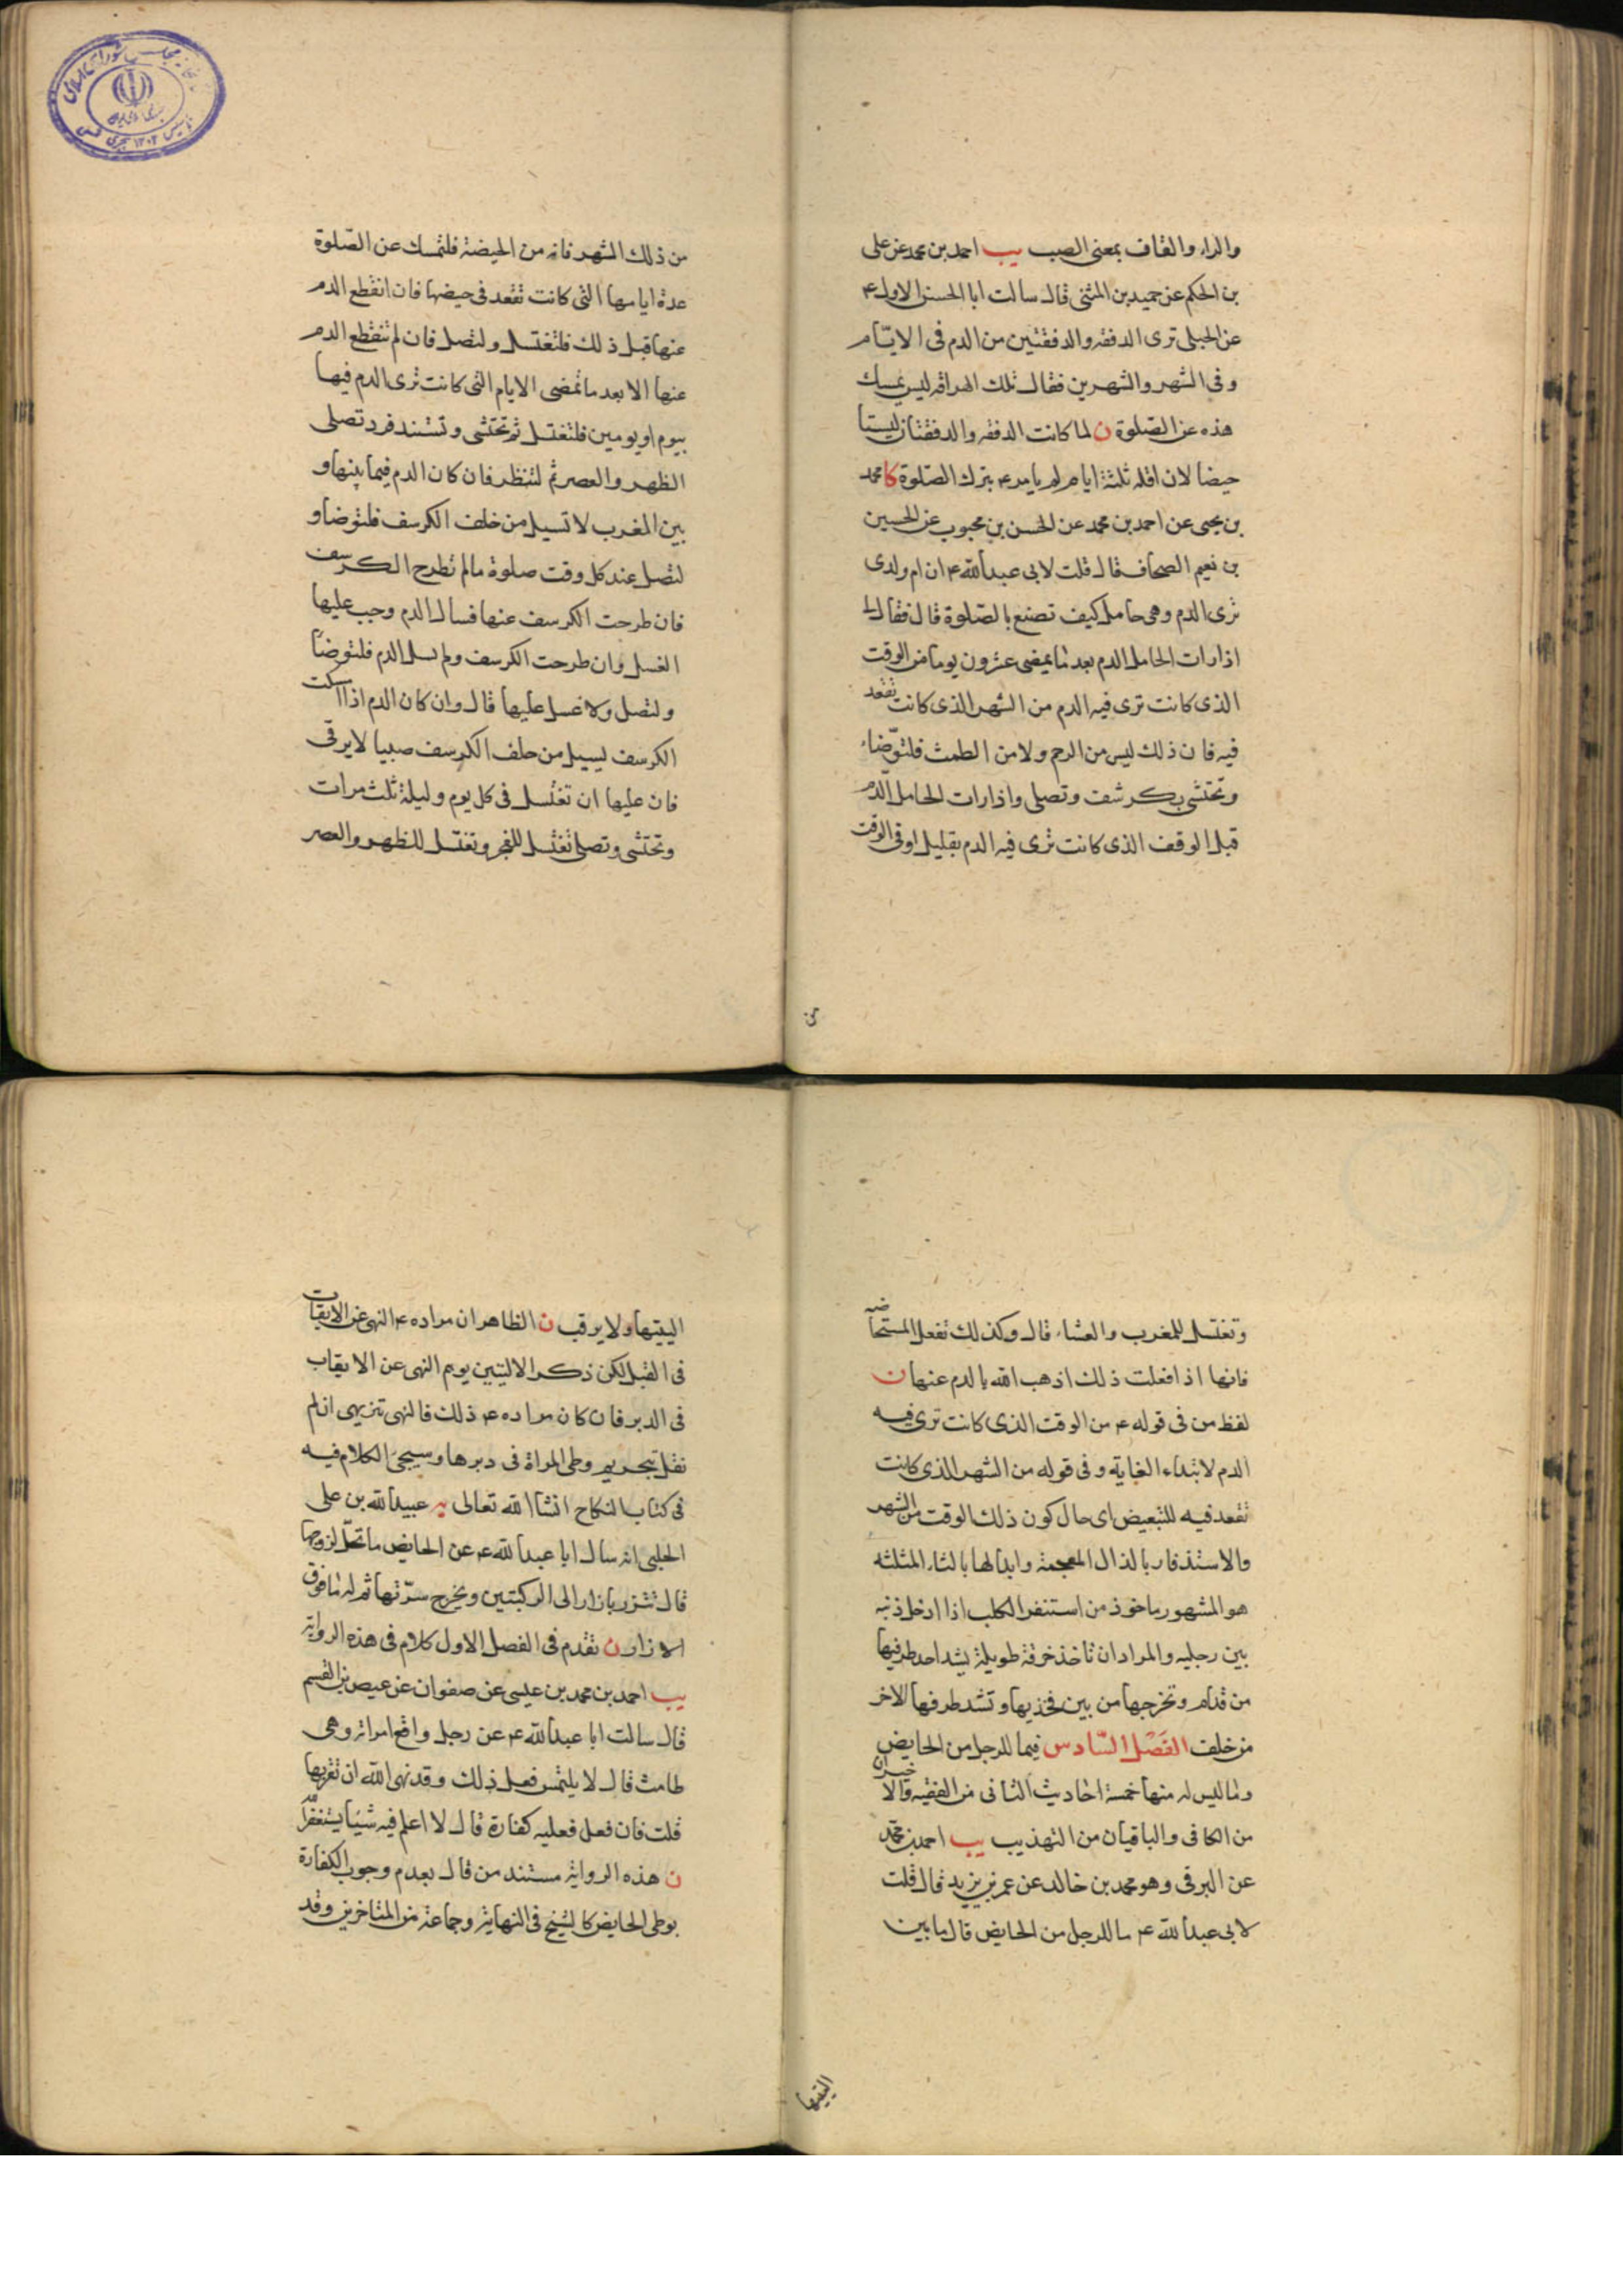 والراء والقاف بمعنى الصب يب احمد بن محمد عن على
بن الحكم عن حميد بن المثنى قال سالت ابا الحسن الاول ع
عن الحبلى ترى الدفقه والدفقتين من الدم فى الايّام
وفى الشهر والشهرين فقال تلك الهراقه ليس يمسك
هذه عن الصّلوة ن لما كانت الدفقه والدفقتان ليستا
حيضا لان اقله ثلثة ايام لم يامر ع بترك الصّلوة كا محمد
بن يحيى عن احمد بن محمد عن الحسن بن محبوب عن الحسين
بن نعيم الصحاف قال قلت لابى عبدالله ع ان ام ولدى
ترى الدم وهى حامل كيف تصنع بالصّلوة قال فقال لى
اذا رات الحامل الدم بعد ما يمضى عشرون يوما من الوقت
الذى كانت ترى فيه الدم من الشهر الذى كانت تقعد
فيه فان ذلك ليس من الرحم ولا من الطمث فلتوّضاء
وتحتشى بكرشف وتصلى واذا رات الحامل الدم
قبل الوقف الذى كانت ترى فيه الدم بقليل او فى الوقت
من
من ذلك الشهر فانه من الحيضة فلتمسك عن الصّلوة
عدة ايامها التى كانت تقعد فى حيضها فان انقطع الدم
عنها قبل ذلك فلتغتسل ولتصل فان لم تنقطع الدم
عنها الا بعد ما تمضى الايام التى كانت ترى الدم فيها
بيوم او يومين فلتغتسل ثم تحتشى وتستذفر وتصلى
الظهر والعصر ثم لتنظر فان كان الدم فيما بينها و
بين المغرب لا تسيل من خلف الكرسف فلتوضا و
لتصل عند كل وقت صلوة ما لم تطرح الكرسف
فان طرحت الكرسف عنها فسال الدم وجب عليها
الغسل وان طرحت الكرسف ولم يسل الدم فلتوضّا
ولتصل ولا غسل عليها قال وان كان الدم اذا امسكت
الكرسف يسيل من خلف الكرسف صبيبا لا يرقى
فان عليها ان تغتسل فى كل يوم وليلة ثلث مرات
وتحتشى وتصلى تغتسل للفجر وتغتسل للظهر والعصر
وتغتسل للمغرب والعشاء قال وكذلك تفعل المستحاضه
فانها اذا فعلت ذلك اذهب الله بالدم عنها ن
لفظ من فى قوله ع من الوقت الذى كانت ترى فيه
الدم لابتداء الغاية وفى قوله من الشهر الذى كانت
تقعد فيه للتبعيض اى حال كون ذلك الوقت من الشهر
والاستذفار بالذال المعجمة وابدالها بالثاء المثلثه
هو المشهور ماخوذ من استثفر الكلب اذا ادخل ذنبه
بين رجليه والمراد ان تاخذ خرقة طويلة يشد احد طرفيها
من قدام وتخرجها من بين فخذيها وتشد طرفها الاخر
من خلف الفَصْل السّادس فيما للرجل من الحايض
وما ليس له منها خمسة احاديث الثانى من الفقيه والاخيران
من الكافى والباقيان من التهذيب يب احمد بن محمّد
عن البرقى وهو محمد بن خالد عن عمر بن يزيد قال قلت
لابى عبدالله ع ما للرجل من الحايض قال ما بين
اليتيها
اليتيها ولا يوقب ن الظاهر ان مراده ع النهى عن الايقاب
فى القبل لكن ذكر الاليتين يوهم النهى عن الايقاب
فى الدبر فان كان مراده ع ذلك فالنهى تنزيهى ان لم
نقل بتحريم وطى المراة فى دبرها وسيجىء الكلام فيه
فى كتاب النكاح انشاالله تعالى يه عبيدالله بن على
الحلبى انه سال ابا عبدالله ع عن الحايض ما تحلّ لزوجها
قال تتزر بازار الى الركبتين ويخرج سرّتها ثم له ما فوق
الازار ن تقدم فى الفصل الاول كلام فى هذه الرواية
يب احمد بن محمد بن عيسى عن صفوان عن عيص بن القسم
قال سالت ابا عبدالله ع عن رجل واقع امراته وهى
طامث قال لا يلتمس فعل ذلك وقد نهى الله ان تقربها
قلت فان فعل فعليه كفارة قال لا اعلم فيه شيئا يستغفر الله
ن هذه الرواية مستند من قال بعدم وجوب الكفارة
بوطى الحايض كالشيخ فى النهاية وجماعة من المتاخرين وقد